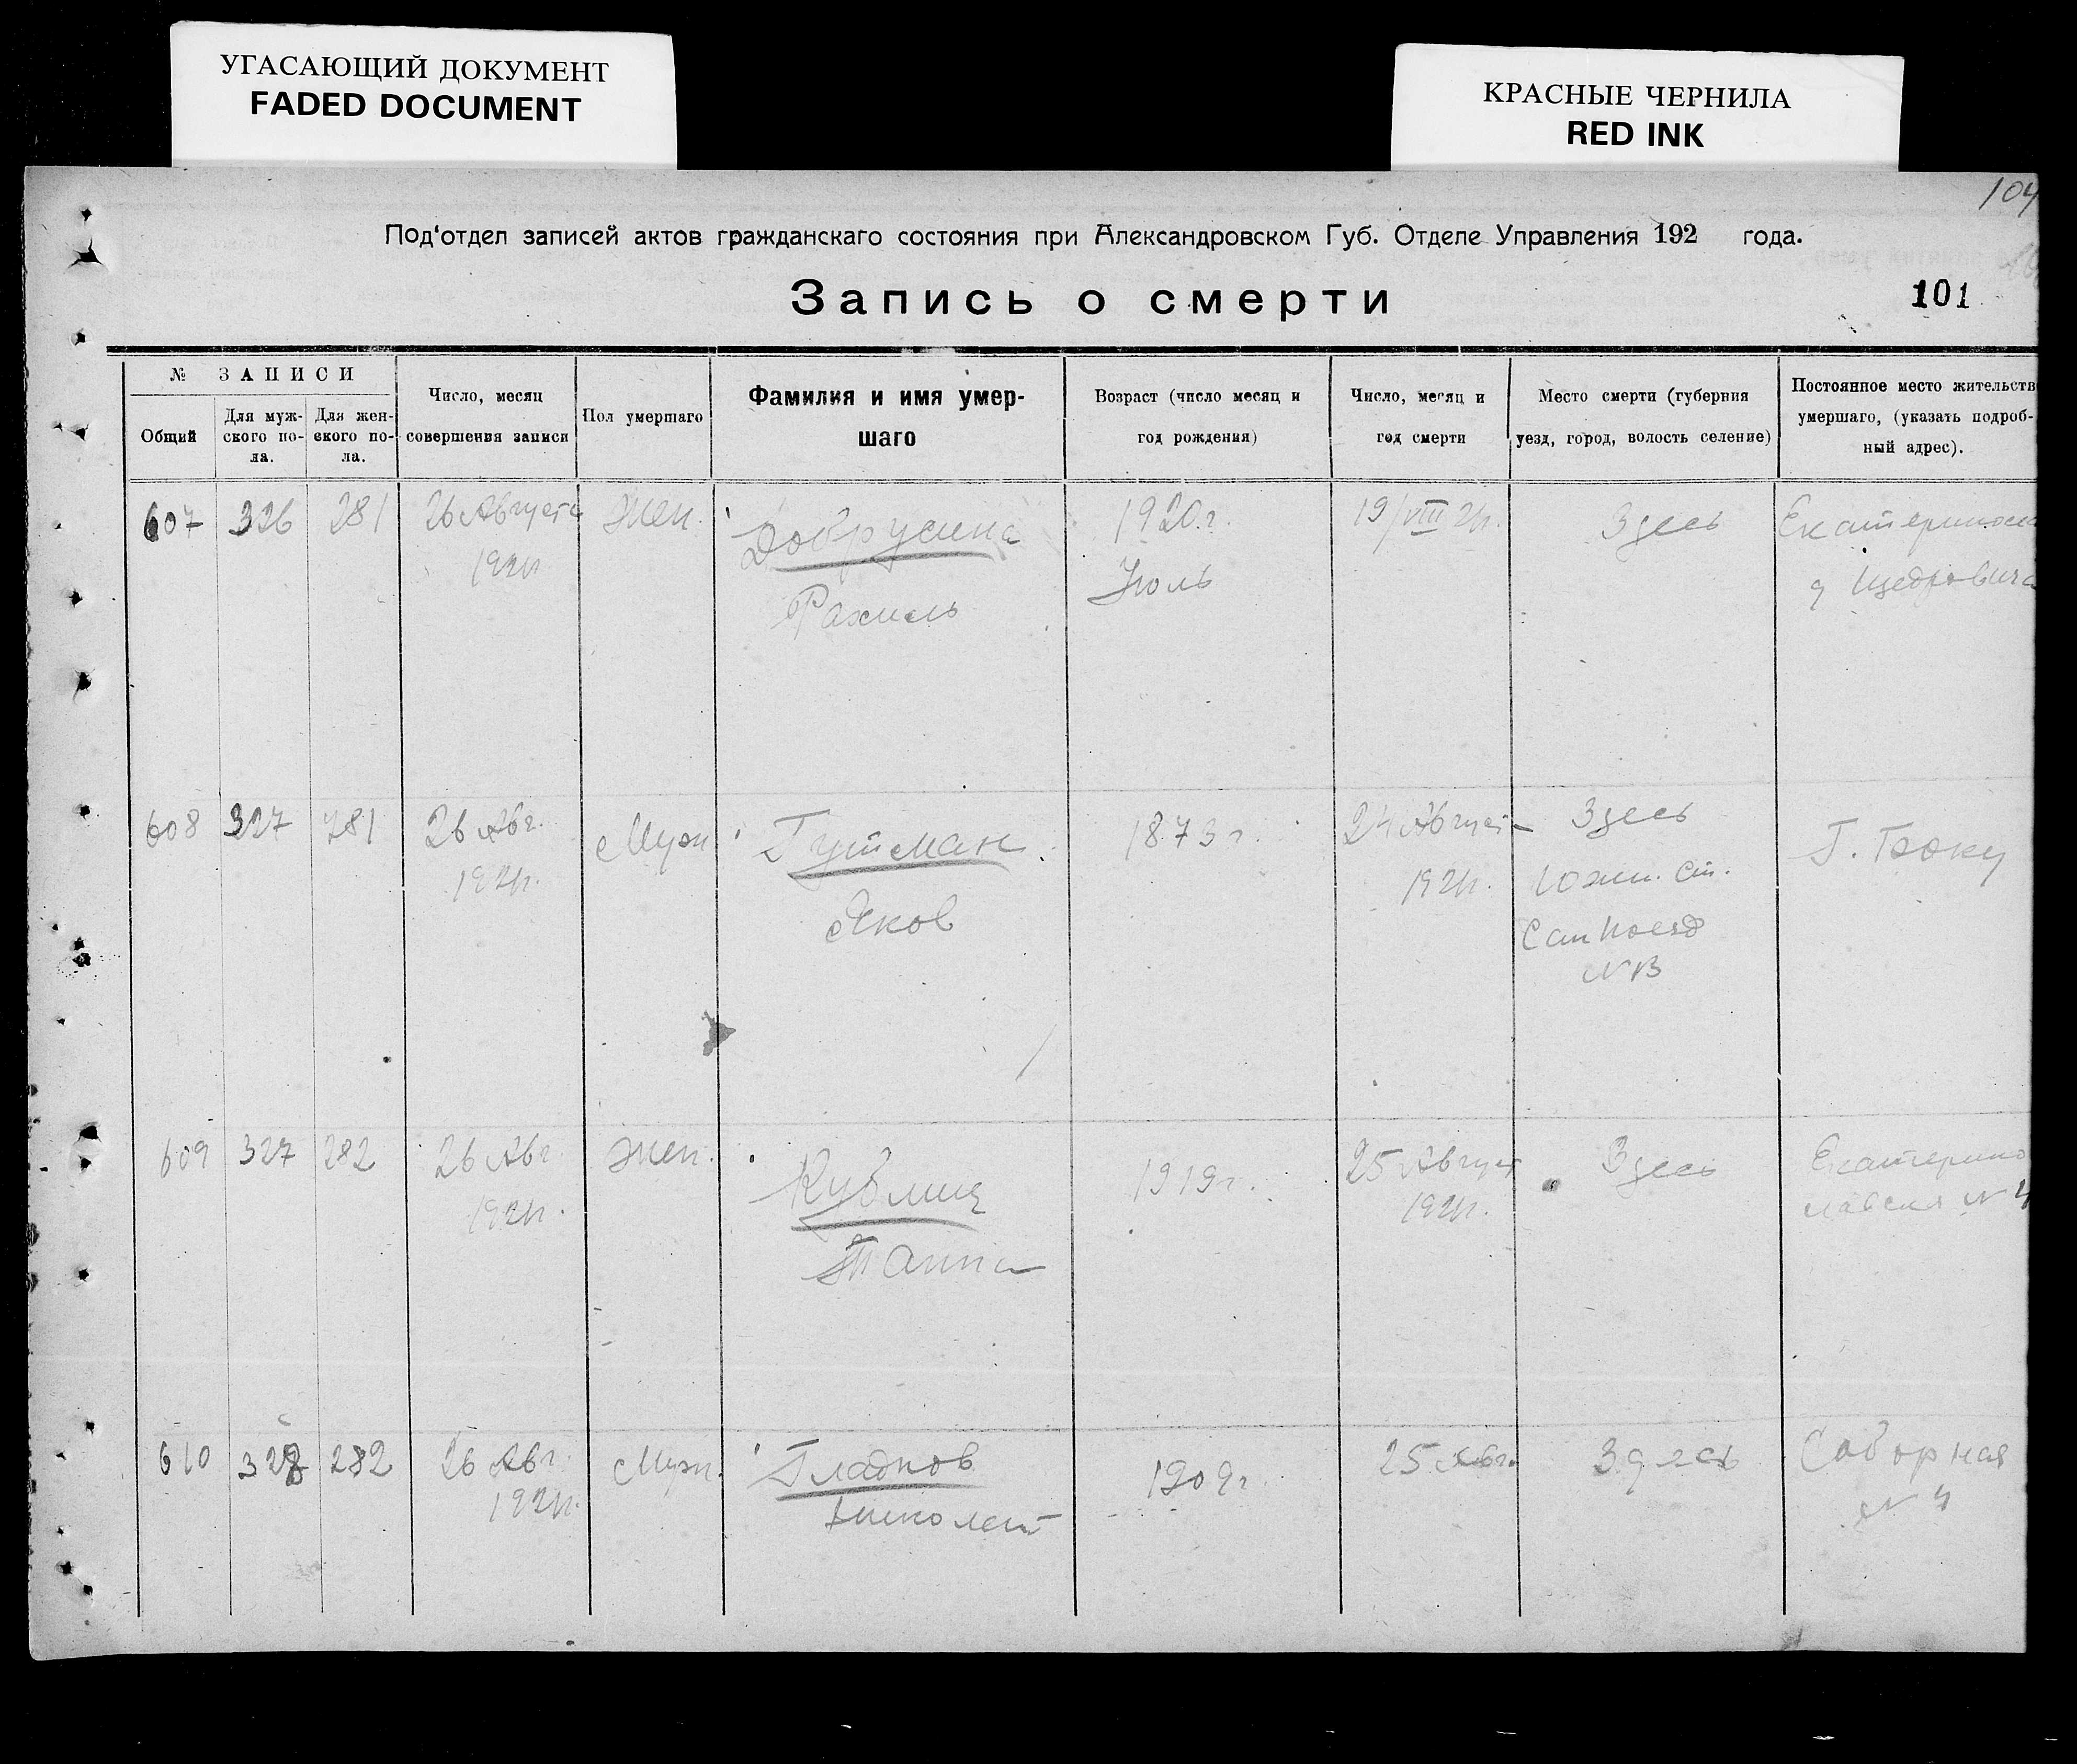 УГАСАЮЩИЙ ДОКУМЕНТ
FADED DOCUMENT
КРАСНЫЕ ЧЕРНИЛА
RED INK
104
Под'отдел записей актов гражданскаго состояния при Александровском Губ. Отделе Управления 192 года.
Запись о смерти
101
№ ЗАПИСИ
Общий
Для муж-
ского по-
ла.
Для жен-
ского по-
ла.
Число, месяц
совершения записи
Пол умершаго
Фамилия и имя умер-
шаго
Возраст (число месяц и
год рождения)
Число, месяц и
год смерти
Место смерти (губерния
уезд, город, волость селение)
Постоянное место жительств
умершаго, (указать подроб-
ный адрес).
607 326 281 26 Августа
1921г
Жен.
Добрусина
Рахиль
1920г.
Июль
19/VIII 21г.
Здесь
д Щедровича
608 327 281 26 Авг.
1921г.
Муж
Гутман
Яков
1873г.
24 Август
1921г.
Здесь
Южн. ст.
Сан Поезд
Г. Баку
609 327 282 26 Авг.
1921г.
Жен.
1919г.
25 Август
1921г.
Здесь
Екатерино
славская № 4
610 328 282 26 Авг.
1921г.
Муж.
Гладков
1909г.
25 Авг.
Здесь
Соборная
№ 4